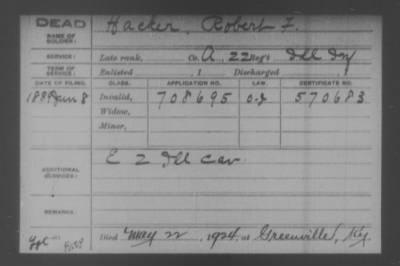 DEAD
NAME OF SOLDIER: Hacker, Robert F.
SERVICE: Late rank, Co. A, 22 Reg't Ill Inf
TERM OF SERVICE: Enlisted , 1 Discharged , 1
DATE OF FILING. CLASS. APPLICATION NO. LAW. CERTIFICATE NO.
1889 Jun 8 Invalid, 708695 O.J 570683
Widow,
Minor,
ADDITIONAL SERVICES: E 2 Ill Cav.
REMARKS.
Died May 22, 1924, at Greenville, Ky.